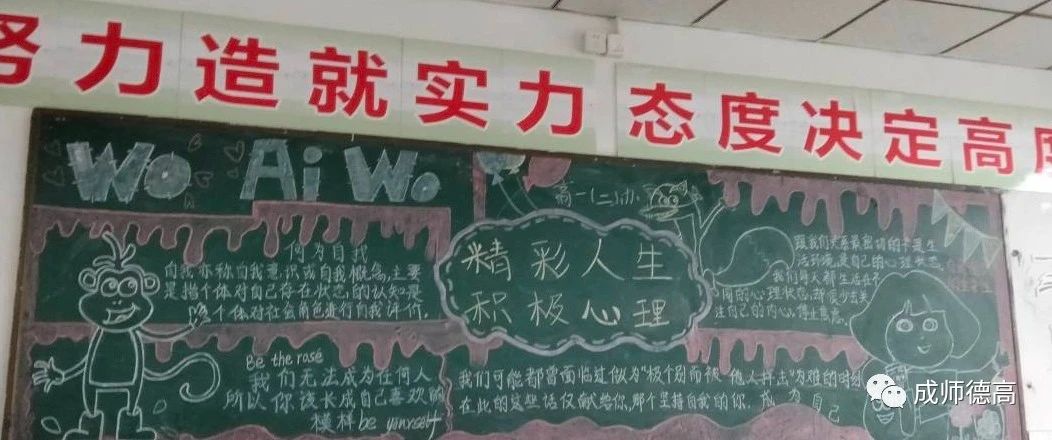 努力造就实力 态度决定高度
Wo Ai Wo
高一(二)
何为自我
自我亦称自我意识或自我概念,主要
是指个体对自己存在状态的认知,是
个体对社会角色进行自我评价。
精彩人生
积极心理
跟我们关系最密切的不是生
活环境,是自己的心理状态,
我们每天都生活在不
同的心理状态,却很少去关
注自己的内心
Be the rose
我们无法成为任何人
所以你该长成自己喜欢的
模样be yourself
我们可能都曾面临过似为"极个别而被"他人抨击"为难的时刻
在此的这些话仅献给你,那个坚持自我的你。成为自己
成师德高